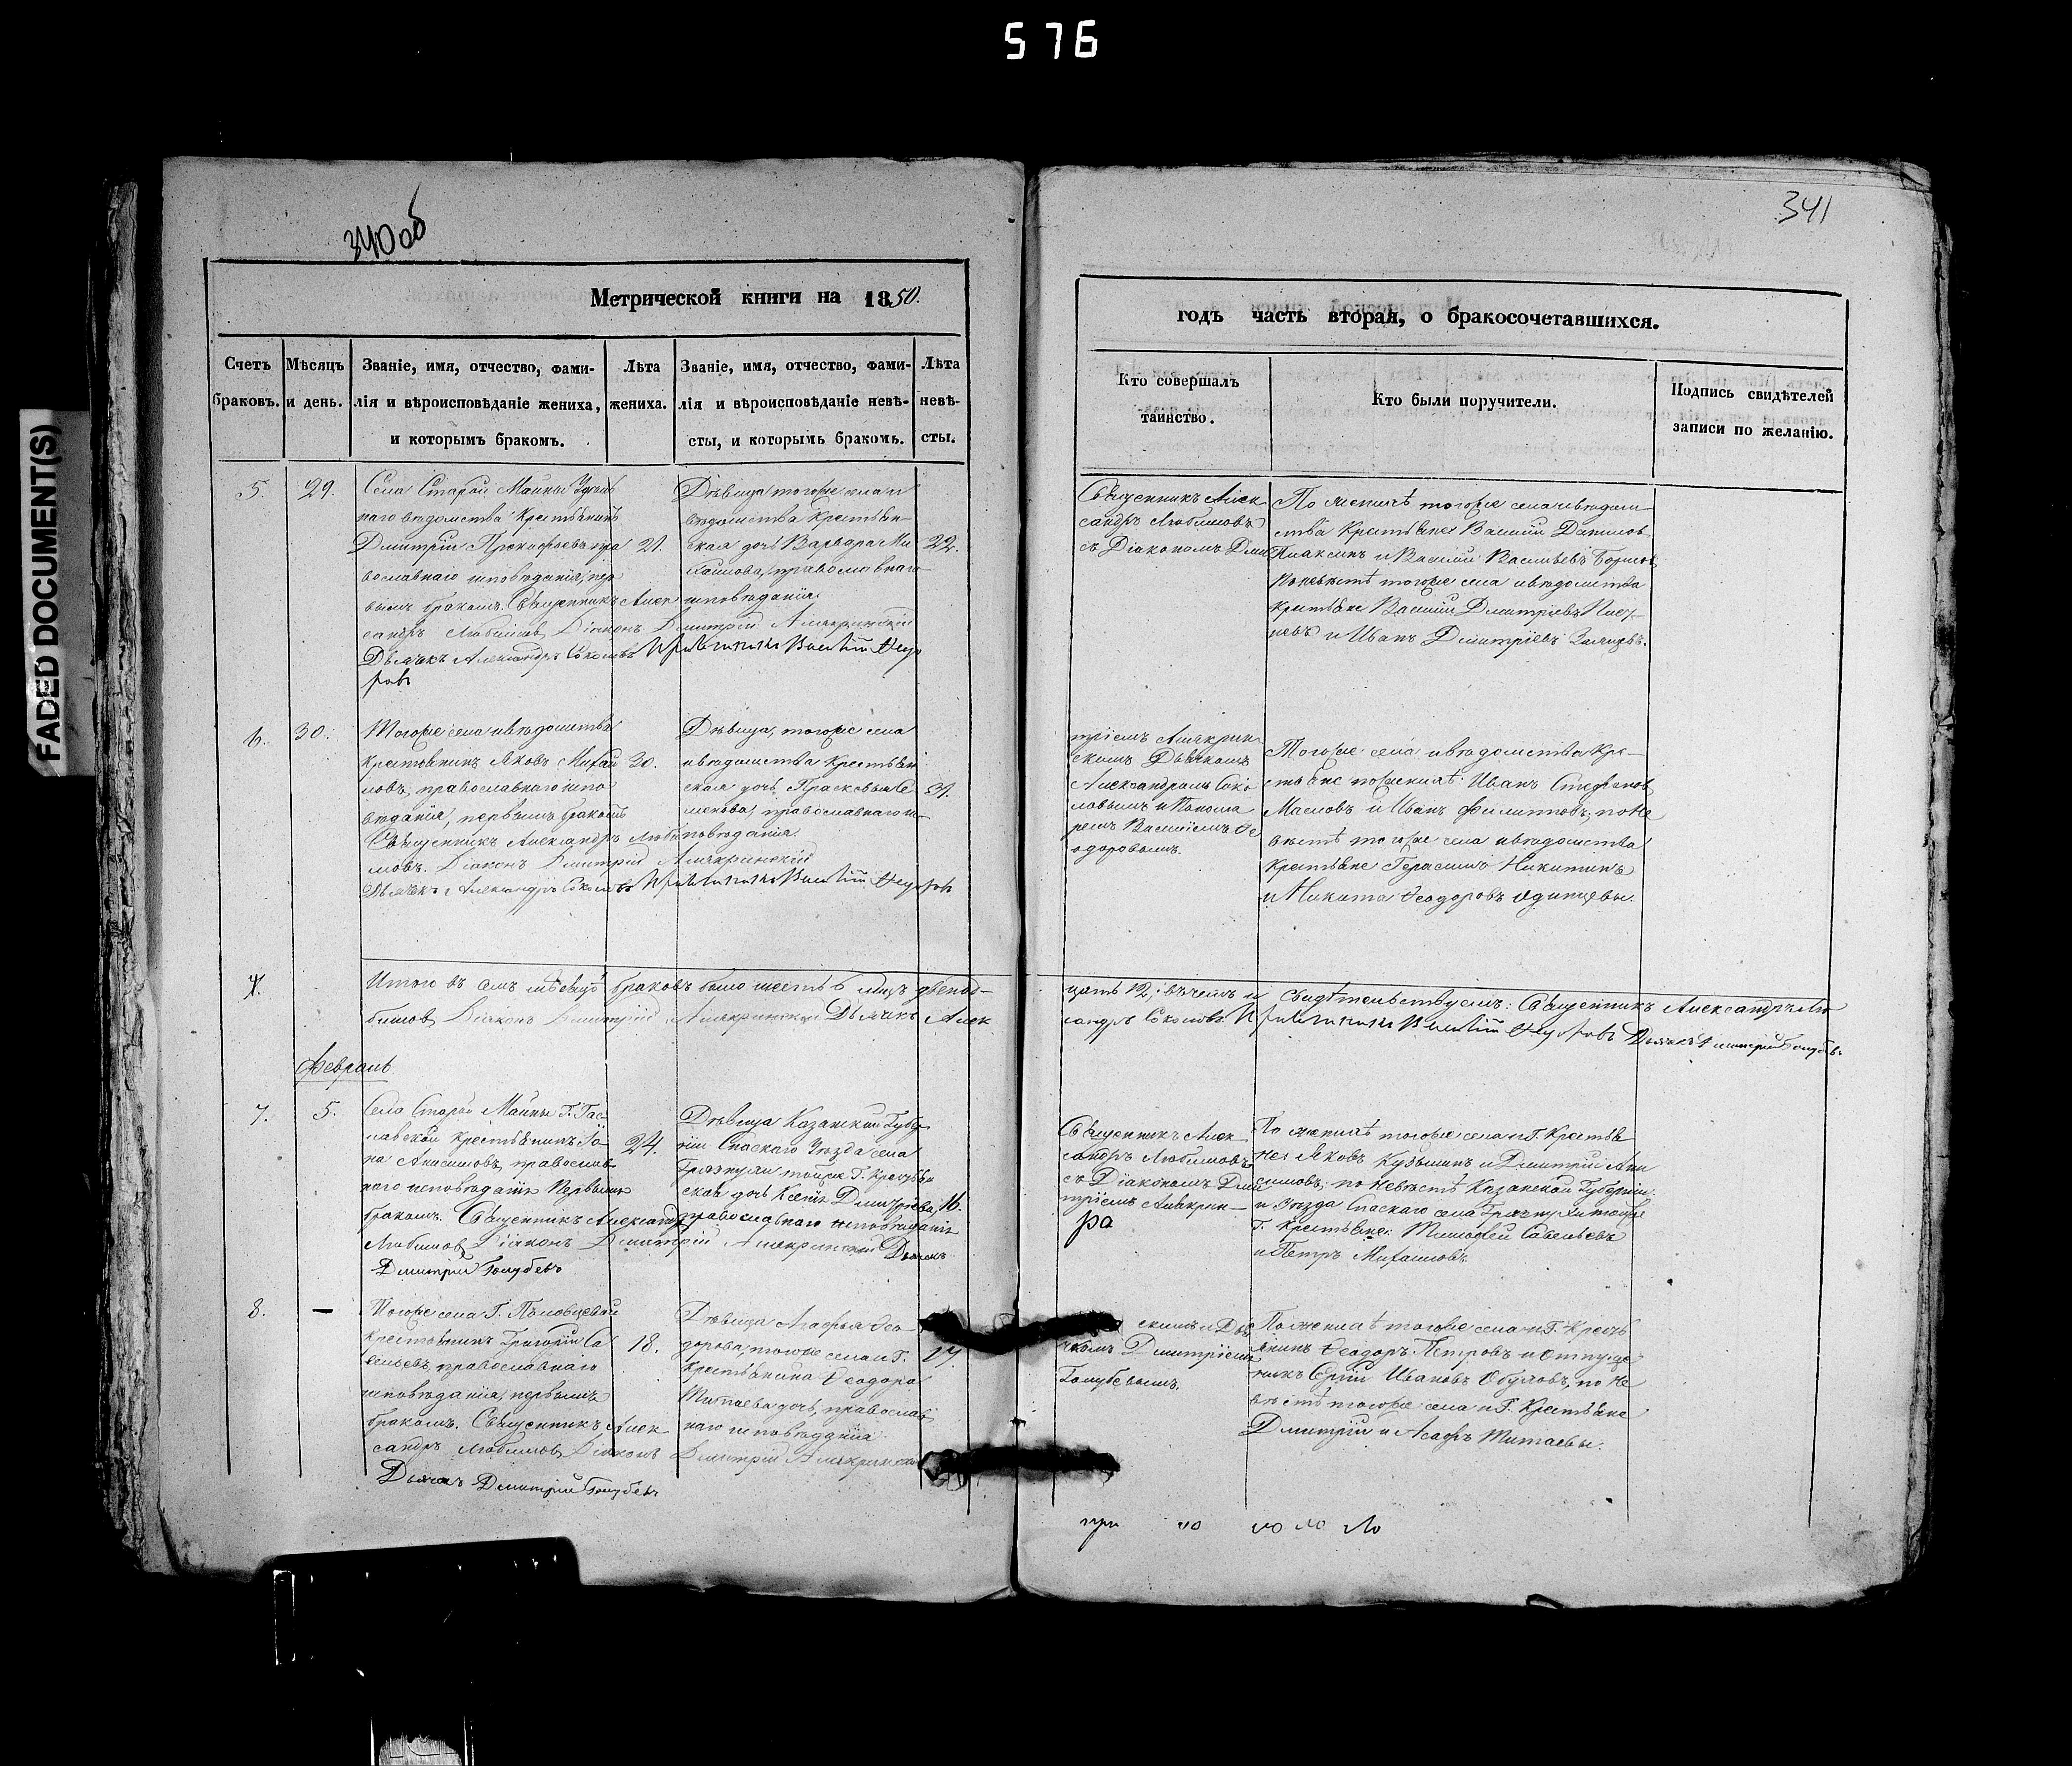 576
FADED DOCUMENT(S)
340 об
341
Метрической книги на 1850.
годъ часть вторая, о бракосочетавшихся.
Счетъ браковъ.
Мѣсяцъ и день.
Званіе, имя, отчество, фами-
лія и вѣроисповѣданіе жениха,
и которымъ бракомъ.
Лѣта
жениха.
Званіе, имя, отчество, фами-
лія и вѣроисповѣданіе невѣ-
сты, и которымъ бракомъ.
Лѣта
невѣ-
сты.
Кто совершалъ
таинство.
Кто были поручители.
Подпись свидѣтелей
записи по желанію.
5.
29.
Села Старой Майны Удѣль
наго вѣдомства Крестьянинъ
Дмитрій Прокофьевъ пра
вославнаго исповѣданія, пер
вымъ бракомъ. Священникъ Алек
сандръ Любимовъ Діаконъ Дмитрій Алякринскій
Дьячекъ Александръ Соколовъ Василій Ѳедо
ровъ
21.
Дѣвица тогоже села и
вѣдомства Крестьян-
ская дочь Варвара Ми
хаилова, православнаго
исповѣданія
22.
Священникъ Алек
сандръ Любимовъ
съ Діакономъ Дми
По женихѣ тогоже села и вѣдом-
ства Крестьяне Василій Даниловъ
и Василій Васильевъ
По невѣстѣ тогоже села и вѣдомства
Крестьяне Василій Дмитріевъ
и Иванъ Дмитріевъ
6.
30.
Тогоже села и вѣдомства
Крестьянинъ Яковъ Михай
ловъ, православнаго испо
вѣданія, первымъ бракомъ
Священникъ Александръ Люби
мовъ. Діаконъ Дмитрій Алякринскій
Дьячекъ Александръ Соколовъ Василій Ѳедоровъ
30.
Дѣвица, тогоже села
и вѣдомства Крестьян
ская дочь Прасковья Се
менова, православнаго ис-
повѣданія.
31.
тріемъ Алякрин
скимъ Дьячкомъ
Александромъ Соко
ловымъ и Понома
ремъ Василіемъ Ѳе
одоровымъ.
Тогоже села и вѣдомства Кре-
стьяне по женихѣ: Иванъ Стефановъ
Масловъ и Иванъ Филиповъ; по не
вѣстѣ тогоже села и вѣдомства
Крестьяне Герасимъ Никитинъ
и Никита Ѳеодоровъ Одинцовы.
Итого въ семъ мѣсяцѣ браковъ было шесть 6 лицъ двенад-
цать 12; въ чемъ и свидѣтельствуемъ: Священникъ Александръ Лю
бимовъ Діаконъ Дмитрій Алякринскій Дьячекъ Алек
сандръ Соколовъ. Василій Ѳедоровъ Дьячекъ Дмитрій Голубевъ
Февраль
7.
5.
Села Старой Майны Г.
Крестьянинъ
Анисимовъ, православ
наго исповѣданія Первымъ
бракомъ. Священникъ Александръ
Любимовъ Діаконъ Дмитрій Алякринскій Дьячекъ
Дмитрій Голубевъ
24.
Дѣвица Казанской Губер
ніи Спаскаго Уѣзда села
тойже Г. Крестьян
ская дочь Ксенія Дмитріева,
православнаго исповѣданія
16.
Священникъ Алек
сандръ Любимовъ
съ Діакономъ Дми
тріемъ Алякрин-
ра
По женихѣ тогоже села и Г. Крестья
не: Яковъ Кузьминъ и Дмитрій Ани
симовъ; по невѣстѣ Казанской Губерніи
и уѣзда Спаскаго села тоюже
Г. Крестьяне: Тимофей Савельевъ
и Петръ Михаиловъ.
8.
—
Тогоже села Г.
Крестьянинъ Григорій Са
вельевъ, православнаго
исповѣданія, первымъ
бракомъ. Священникъ Алек
сандръ Любимовъ Діаконъ Дмитрій Алякринскій
Дьячекъ Дмитрій Голубевъ
18.
Дѣвица Агафья Ѳео-
дорова, тогоже села и Г.
Крестьянина Ѳеодора
дочь, православ
наго исповѣданія
17.
скимъ и Дья
чкомъ Дмитріемъ
Голубевымъ.
По женихѣ тогоже села и Г. Кресть
янинъ Ѳеодоръ Петровъ и отпуще
никъ Сергій Ивановъ по не
вѣстѣ тогоже села и Г. Крестьяне
Дмитрій и